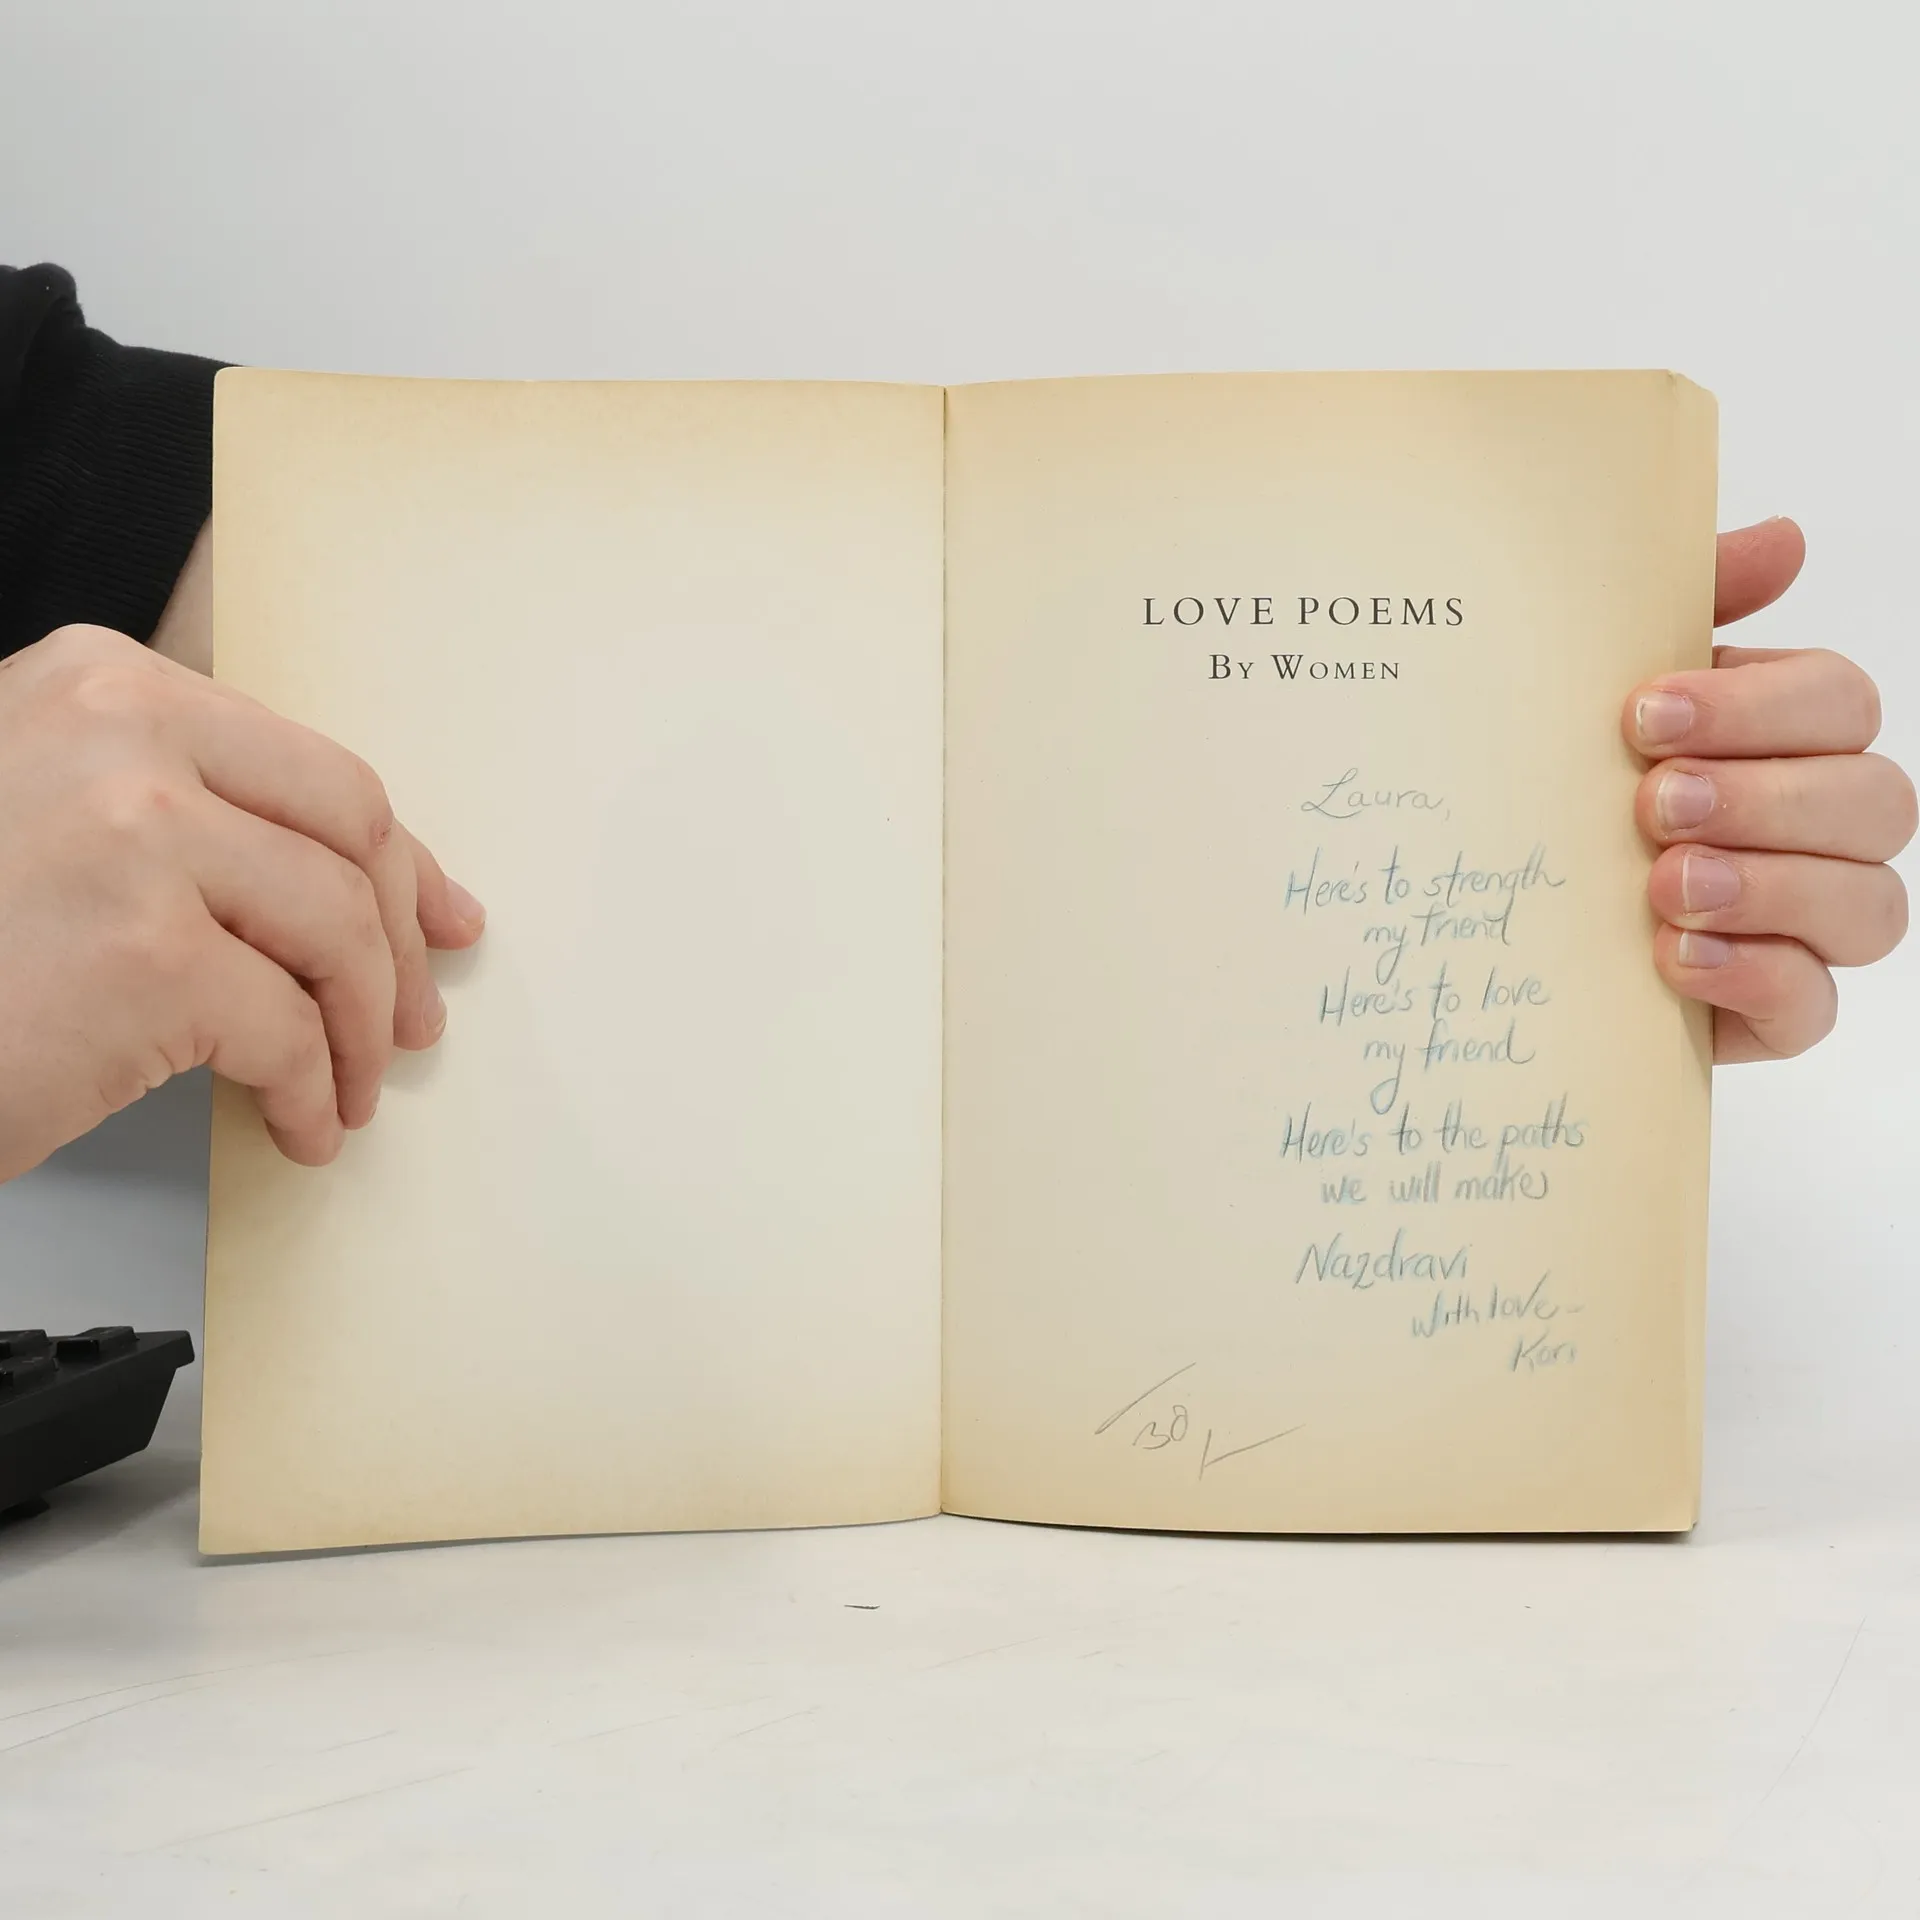 LOVE POEMS
BY WOMEN
Laura,
Here's to strength
my friend
Here's to love
my friend
Here's to the paths
we will make
Nazdravi
With love-
Kori
30